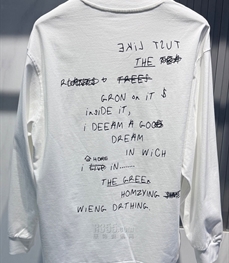 TƧUT LIKE
THE
TREE!
GRON on iT $
insiDE iT,
i DEEAM A GOOD
DREAM
IN WiCH
HOME
i IN......
THE GREEn
HOMZYING
WiENG DRTHING